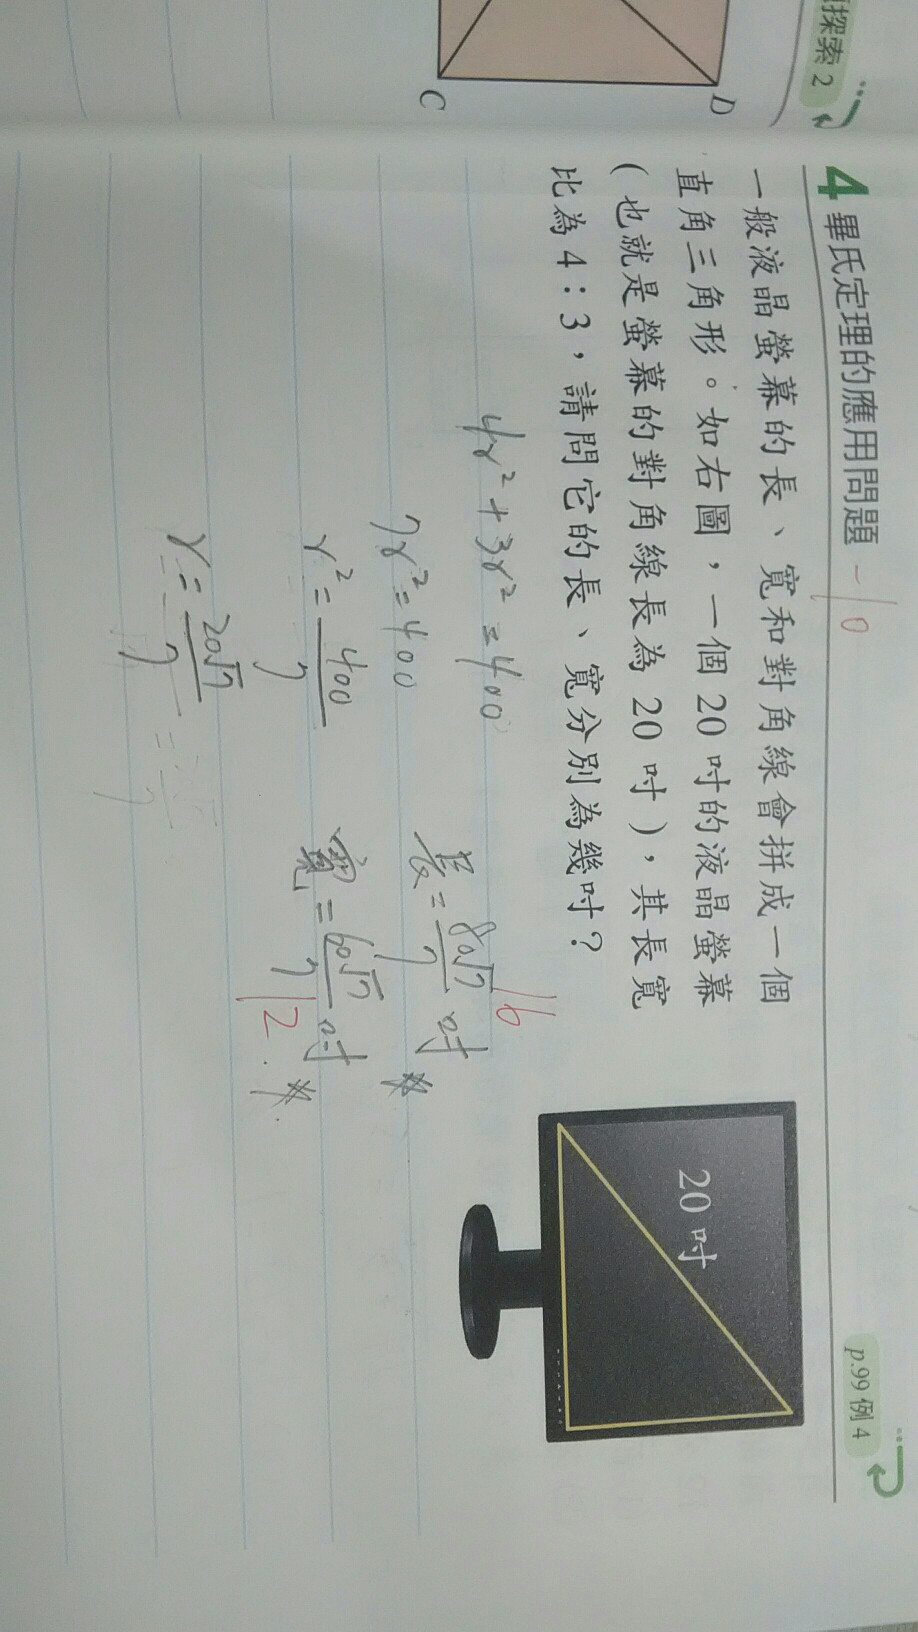 探索2
C
D
4 畢氏定理的應用問題 -10
p.99 例 4
一般液晶螢幕的長、寬和對角線會拼成一個
直角三角形。如右圖，一個 20 吋的液晶螢幕
(也就是螢幕的對角線長為 20 吋)，其長寬
比為 4：3，請問它的長、寬分別為幾吋？
20 吋
4r²+3r²=400
7r²=400
r²=400/7
r=20√7/7
長=80√7/7 吋 16
寬=60√7/7 吋 12